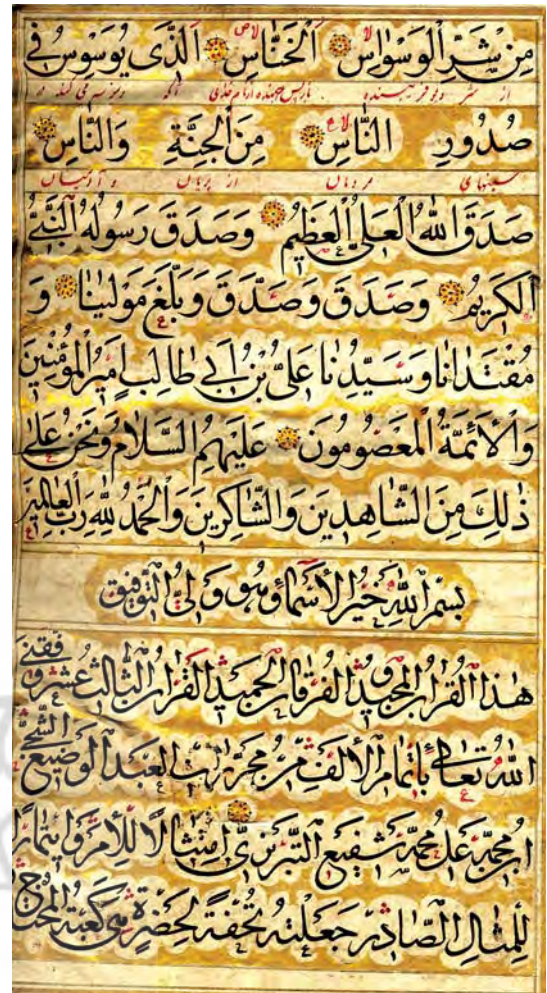 مِنْ شَرِّ الْوَسْوَاسِ الْخَنَّاسِ الَّذِي يُوَسْوِسُ فِي
از شر
صُدُورِ النَّاسِ مِنَ الْجِنَّةِ وَالنَّاسِ
سینهای مردمان از پریان و آدمیان
صَدَقَ اللهُ الْعَلِيُّ الْعَظِيمُ وَصَدَقَ رَسُولُهُ النَّبِيُّ
الْكَرِيمُ وَصَدَقَ وَصَدَّقَ وَبَلَّغَ مَوْلَينَا وَ
مُقْتَدَانَا وَسَيِّدُنَا عَلِيُّ بْنُ أَبِي طَالِبٍ أَمِيرُ الْمُؤْمِنِينَ
وَالْأَئِمَّةُ الْمَعْصُومُونَ عَلَيْهِمُ السَّلَامُ وَنَحْنُ عَلَى
ذَلِكَ مِنَ الشَّاهِدِينَ وَالشَّاكِرِينَ وَالْحَمْدُ لِلَّهِ رَبِّ الْعَالَمِينَ
بسم الله خير الأسماء وهو ولي التوفيق
هذا القران المجيد والفرقان الحميد القران الثالث عشر وفقني
الله تعالى باتمامه الألف من مجرت العبد الوضيع
ابن محمد علي محمد شفيع التبريزي امتثالا للأمر وايتمارا
للمثال الصادر جعلته تحفة لحضرة هي كعبة المحتاج